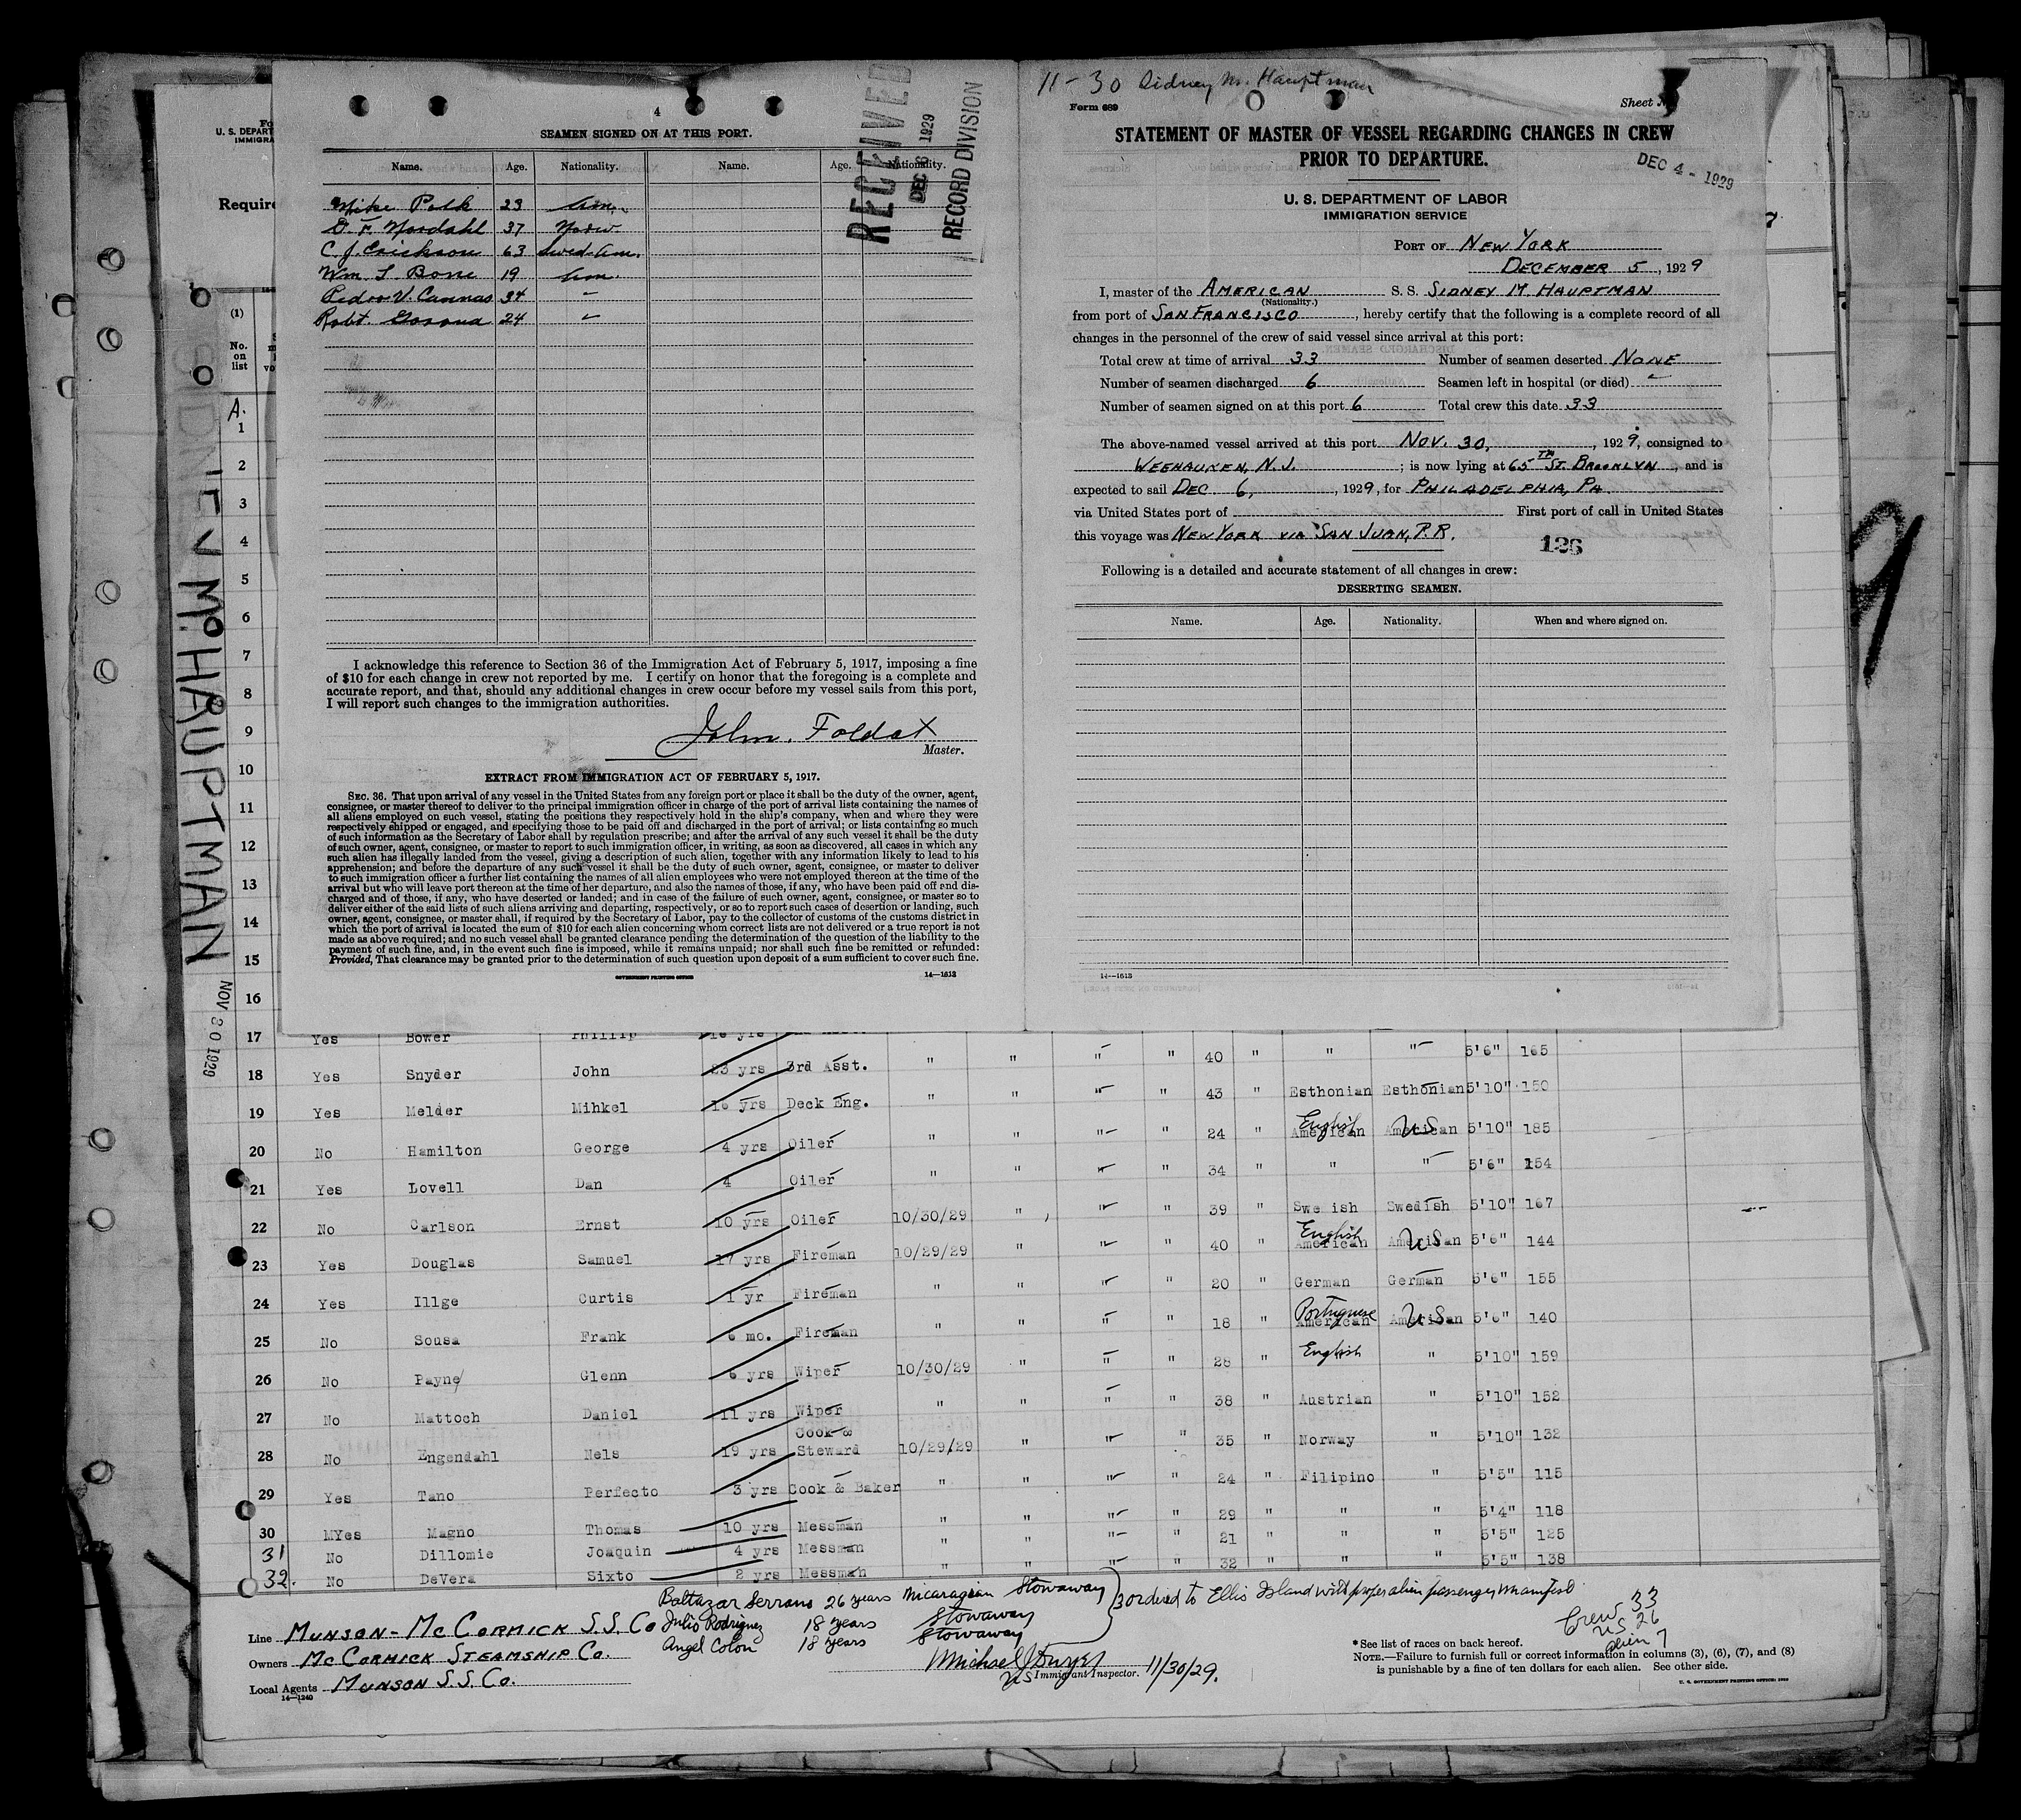 Fo
U. S. DEPART
IMMIGRA
Require
(1)
No.
on
list
A.
1
2
3
4
5
6
7
8
9
10
11
12
13
14
15
16
SIDNEY M. HAUPTMAN
NOV 30 1929
4
SEAMEN SIGNED ON AT THIS PORT.
RECEIVED
DEC 6 1929
RECORD DIVISION
Name. Age. Nationality. Name. Age. Nationality.
Mike Polk 23 Am.
D. F. Nordahl 37 Norw
C. J. Erickson 63 Swed. Am.
Wm. S Bone 19 Am.
Pedro V. Cannas 34 "
Robt. 24 "
I acknowledge this reference to Section 36 of the Immigration Act of February 5, 1917, imposing a fine
of $10 for each change in crew not reported by me. I certify on honor that the foregoing is a complete and
accurate report, and that, should any additional changes in crew occur before my vessel sails from this port,
I will report such changes to the immigration authorities.
John. Foldat
Master.
EXTRACT FROM IMMIGRATION ACT OF FEBRUARY 5, 1917.
SEC. 36. That upon arrival of any vessel in the United States from any foreign port or place it shall be the duty of the owner, agent,
consignee, or master thereof to deliver to the principal immigration officer in charge of the port of arrival lists containing the names of
all aliens employed on such vessel, stating the positions they respectively hold in the ship's company, when and where they were
respectively shipped or engaged, and specifying those to be paid off and discharged in the port of arrival; or lists containing so much
of such information as the Secretary of Labor shall by regulation prescribe; and after the arrival of any such vessel it shall be the duty
of such owner, agent, consignee, or master to report to such immigration officer, in writing, as soon as discovered, all cases in which any
such alien has illegally landed from the vessel, giving a description of such alien, together with any information likely to lead to his
apprehension; and before the departure of any such vessel it shall be the duty of such owner, agent, consignee, or master to deliver
to such immigration officer a further list containing the names of all alien employees who were not employed thereon at the time of the
arrival but who will leave port thereon at the time of her departure, and also the names of those, if any, who have been paid off and dis-
charged and of those, if any, who have deserted or landed; and in case of the failure of such owner, agent, consignee, or master so to
deliver either of the said lists of such aliens arriving and departing, respectively, or so to report such cases of desertion or landing, such
owner, agent, consignee, or master shall, if required by the Secretary of Labor, pay to the collector of customs of the customs district in
which the port of arrival is located the sum of $10 for each alien concerning whom correct lists are not delivered or a true report is not
made as above required; and no such vessel shall be granted clearance pending the determination of the question of the liability to the
payment of such fine, and, in the event such fine is imposed, while it remains unpaid; nor shall such fine be remitted or refunded:
Provided, That clearance may be granted prior to the determination of such question upon deposit of a sum sufficient to cover such fine.
GOVERNMENT PRINTING OFFICE 14—1613
11-30 Sidney M. Hauptman
Form 689 Sheet
STATEMENT OF MASTER OF VESSEL REGARDING CHANGES IN CREW
PRIOR TO DEPARTURE.
DEC 4 - 1929
U. S. DEPARTMENT OF LABOR
IMMIGRATION SERVICE
PORT OF NEW YORK
DECEMBER 5, 1929
I, master of the AMERICAN S. S. SIDNEY M. HAUPTMAN
(Nationality.)
from port of SAN FRANCISCO, hereby certify that the following is a complete record of all
changes in the personnel of the crew of said vessel since arrival at this port:
Total crew at time of arrival 33 Number of seamen deserted NONE
Number of seamen discharged 6 Seamen left in hospital (or died) -
Number of seamen signed on at this port 6 Total crew this date 33
The above-named vessel arrived at this port NOV. 30, 1929, consigned to
WEEHAUKEN, N.J.; is now lying at 65TH ST. BROOKLYN, and is
expected to sail DEC 6, 1929, for PHILADELPHIA, PA.
via United States port of First port of call in United States
this voyage was NEW YORK VIA SAN JUAN, P.R.
126
Following is a detailed and accurate statement of all changes in crew:
DESERTING SEAMEN.
Name. Age. Nationality. When and where signed on.
14—1613
17 Yes Bower Phillip 40 " " " 5'6" 165
18 Yes Snyder John 23 yrs 3rd Asst. " " " " 43 " Esthonian Esthonian 5'10" 150
19 Yes Melder Mihkel 16 yrs Deck Eng. " " " " 24 " American English American US 5'10" 185
20 No Hamilton George 4 yrs Oiler " " " " 34 " " " 5'6" 154
21 Yes Lovell Dan 4 Oiler " " " " 39 " Swe ish Swedish 5'10" 167
22 No Carlson Ernst 10 yrs Oiler 10/30/29 " " " 40 " American English American US 5'6" 144
23 Yes Douglas Samuel 17 yrs Fireman 10/29/29 " " " 20 " German German 5'6" 155
24 Yes Illge Curtis 1 yr Fireman " " " " 18 " American Portuguese American US 5'6" 140
25 No Sousa Frank 6 mo. Fireman " " " " 28 " English " 5'10" 159
26 No Payne Glenn 6 yrs Wiper 10/30/29 " " " 38 " Austrian " 5'10" 152
27 No Mattoch Daniel 11 yrs Wiper " " " " 35 " Norway " 5'10" 132
28 No Engendahl Nels 19 yrs Cook & Steward 10/29/29 " " " 24 " Filipino " 5'5" 115
29 Yes Tano Perfecto 3 yrs Cook & Baker " " " " 29 " " " 5'4" 118
30 MYes Magno Thomas 10 yrs Messman " " " " 21 " " " 5'5" 125
31 No Dillomie Joaquin 4 yrs Messman " " " " 32 " " " 5'5" 138
32. No DeVera Sixto 2 yrs Messman
Baltazar Serrano 26 years Nicaragian Stowaway
Julio Rodriguez 18 years Stowaway
Angel Colon 18 years Stowaway
3 ordered to Ellis Island with proper alien passenger manifest
Line MUNSON-MCCORMICK S.S. CO
Owners MCCORMICK STEAMSHIP CO.
Local Agents MUNSON S.S. CO.
14—1240
Michael J
US Immigrant Inspector. 11/30/29.
Crew 33
US 26
Alien 7
* See list of races on back hereof.
NOTE.—Failure to furnish full or correct information in columns (3), (6), (7), and (8)
is punishable by a fine of ten dollars for each alien. See other side.